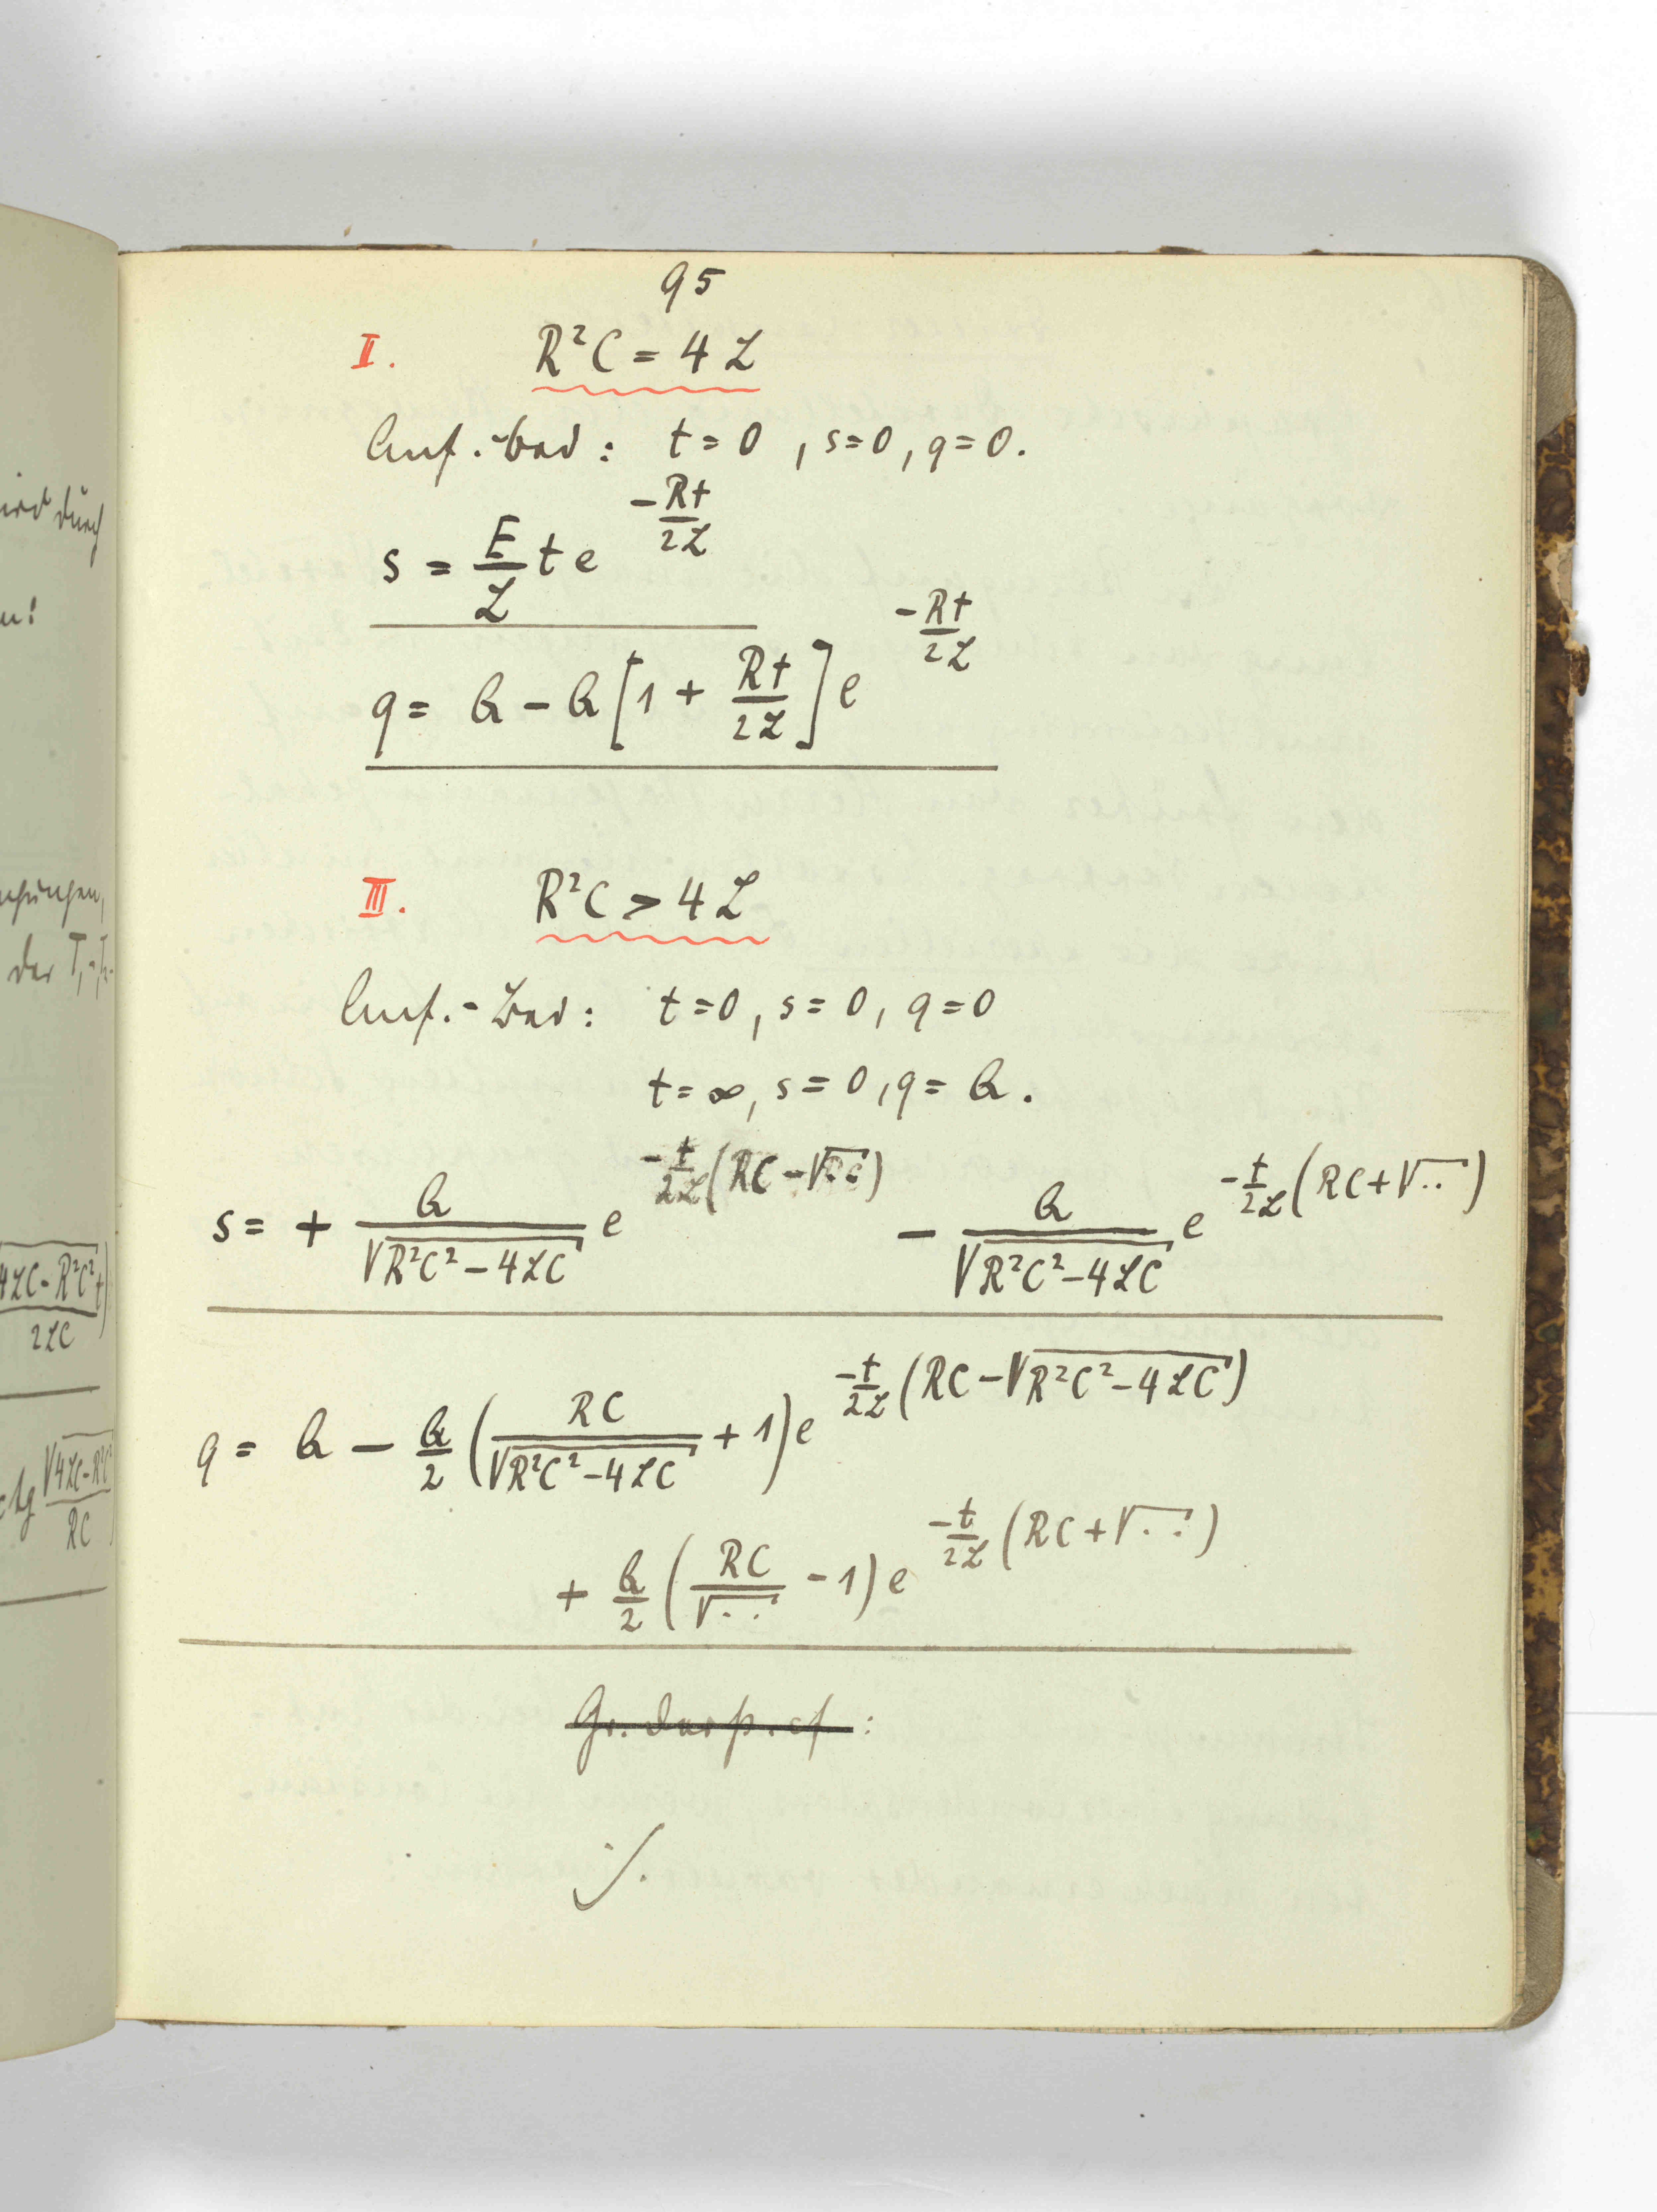 95
II. R²C = 4L
Anf.-Bed: t=0, s=0, q=0.
s = E/L t e^(-Rt/2L)
q = Q - Q[1 + Rt/2L] e^(-Rt/2L)
III. R²C > 4L
Anf.-Bed: t=0, s=0, q=0
t=∞, s=0, q=Q.
s = + Q/√(R²C²-4LC) e^(-t/2L (RC-√..)) - Q/√(R²C²-4LC) e^(-t/2L (RC+√..))
q = Q - Q/2 (RC/√(R²C²-4LC) + 1) e^(-t/2L (RC-√(R²C²-4LC)))
+ Q/2 (RC/√.. - 1) e^(-t/2L (RC+√..))
./.
wird durch
der T₁-T₂-
√(4LC-R²C²) t
2LC
ctg √(4LC-R²C²)/RC